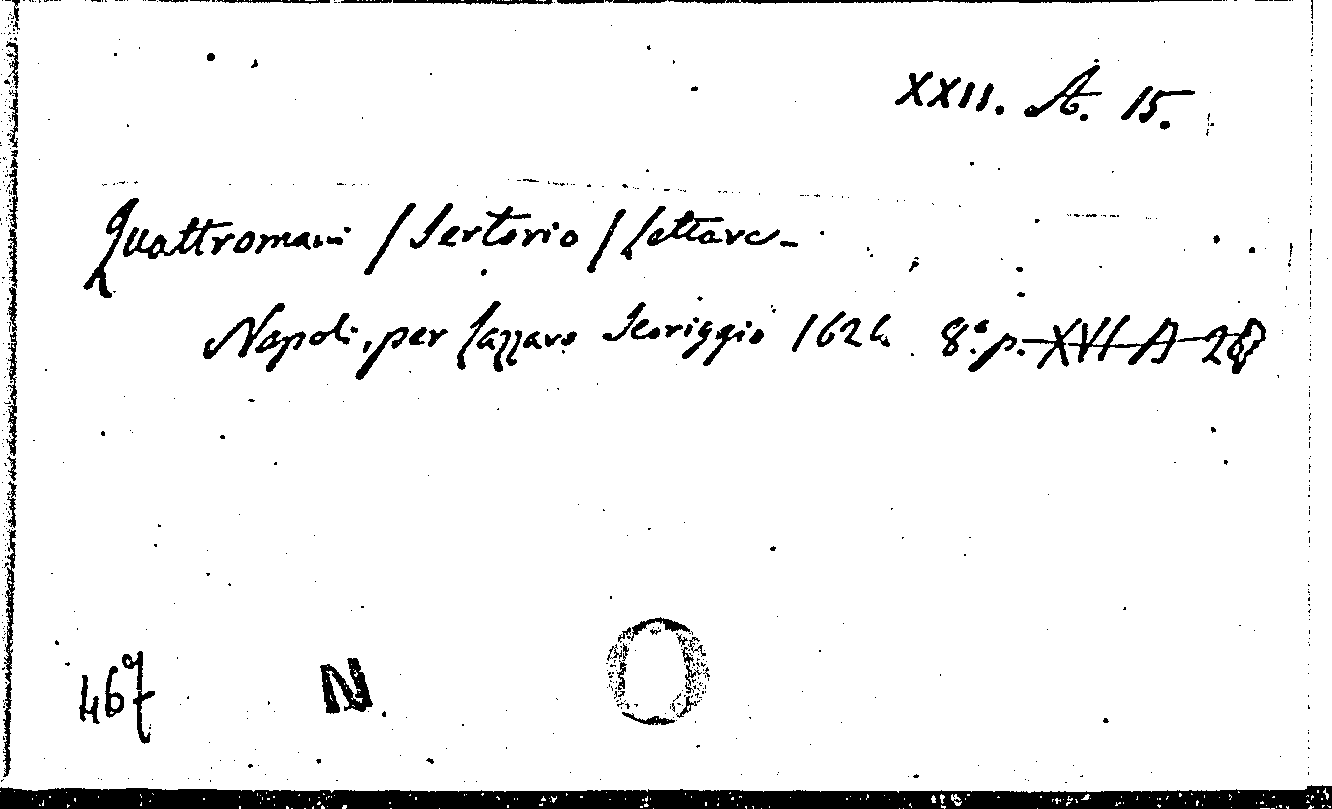 XXII. A. 15.
Quattromani / Sertorio / Lettere -
Napoli, per Lazzaro Scoriggio 1624. 8.° p. XVI A 28
467 N